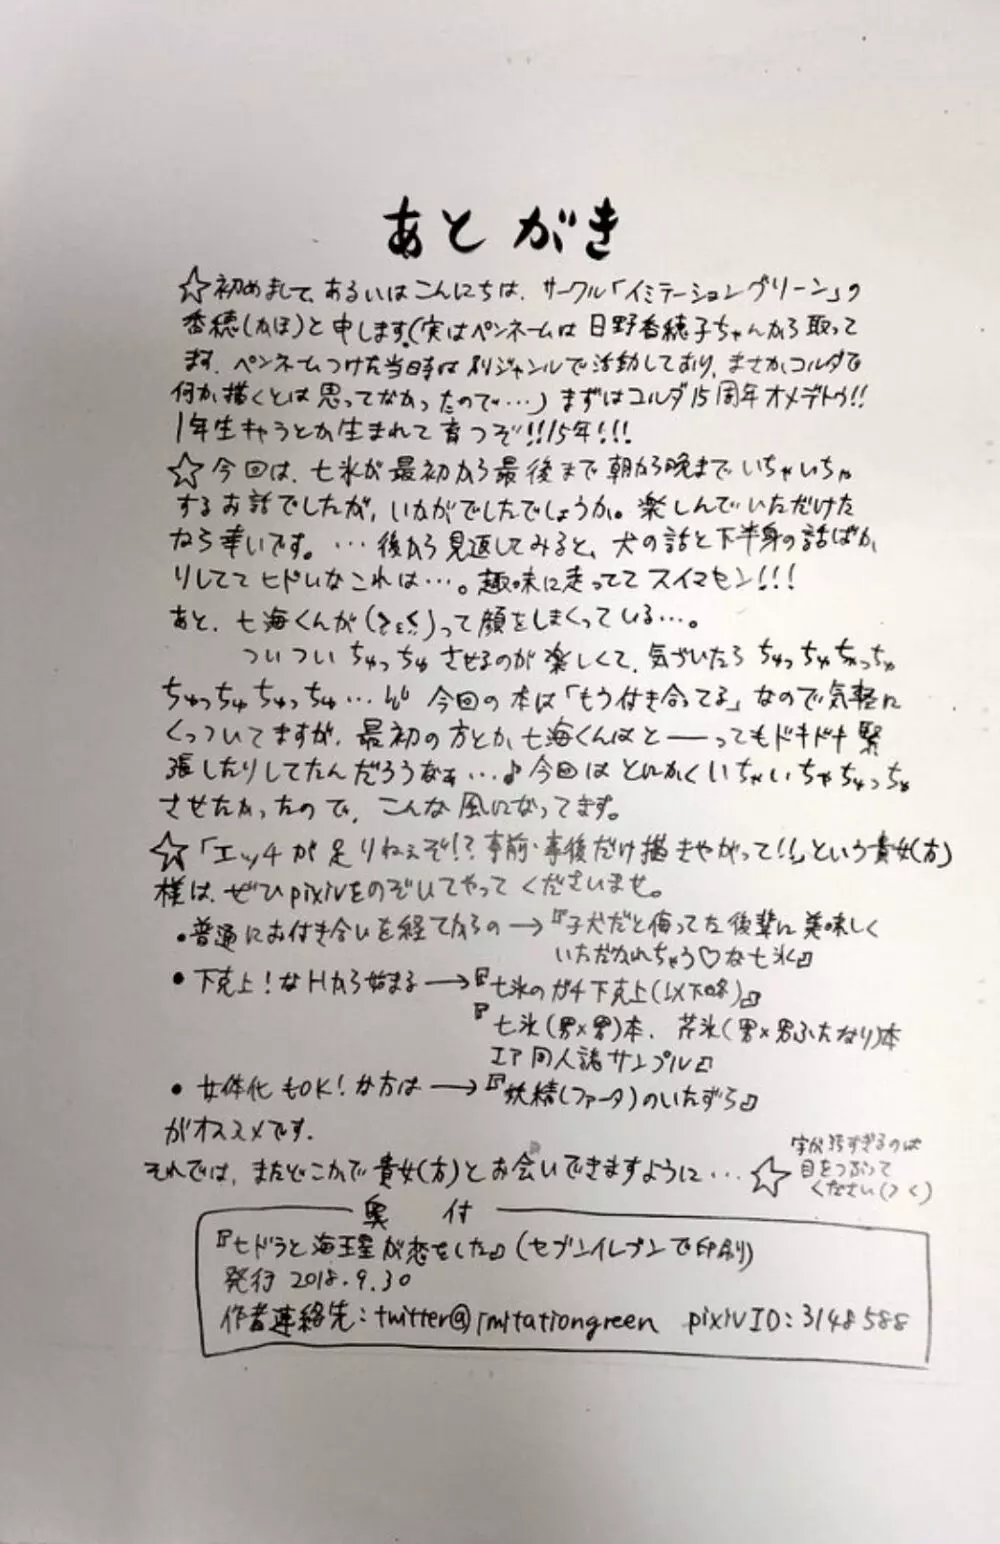 あとがき
☆初めまして、あるいはこんにちは、サークル「イミテーショングリーン」の
香穂(かほ)と申します。(実はペンネームは日野香穂子ちゃんから取って
ます。ペンネームつけた当時は別ジャンルで活動しており、まさかコルダで
何か描くとは思ってなかったので…)まずはコルダ15周年オメデトウ!!
1年生きゃうとか生まれて育つぞ!!15年!!!
☆今回は、七氷が最初から最後まで朝から晩までいちゃいちゃ
するお話でしたが、いかがでしたでしょうか。楽しんでいただけた
なら幸いです。…後から見返してみると、犬の話と下半身の話ばか
りしててヒドいなこれは…。趣味に走っててスイマセン!!!
あと、七海くんが って顔をしまくっている…。
ついついちゅっちゅさせるのが楽しくて、気づいたらちゅっちゅちゅっちゅ
ちゅっちゅちゅっちゅ… 今回の本は「もう付き合ってる」なので気軽に
くっついてますが、最初の方とか、七海くんはと──ってもドキドキ緊
張したりしてたんだろうなぁ…♪今回はとにかくいちゃいちゃちゅっちゅ
させたかったので、こんな風になってます。
☆「エッチが足りねぇぞ!?事前・事後だけ描きやがって!!」という貴女(方)
様は、ぜひpixivをのぞいてやってくださいませ。
・普通にお付き合いを経てからの→『子犬だと侮ってた後輩に美味しく
いただかれちゃう♡な七氷』
・下克上!なHから始まる→『七氷のガチ下克上(以下略)』
『七氷(男×男)本、芹氷(男×男ふたなり)本
エア同人誌サンプル』
・女体化もOK!な方は→『妖精(ファータ)のいたずら』
がオススメです。
それでは、またどこかで貴女(方)とお会いできますように…☆
字が汚すぎるのは
目をつぶって
ください
奥付
『七ドラと海王星が恋をした』(セブンイレブンで印刷)
発行 2018.9.30
作者連絡先:twitter@imitationgreen pixivID:3148588